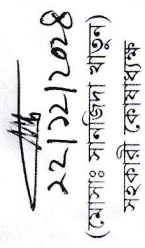 ২২/১২/২০২৪
(মোসাঃ সানজিদা খাতুন)
সহকারী কোষাধ্যক্ষ